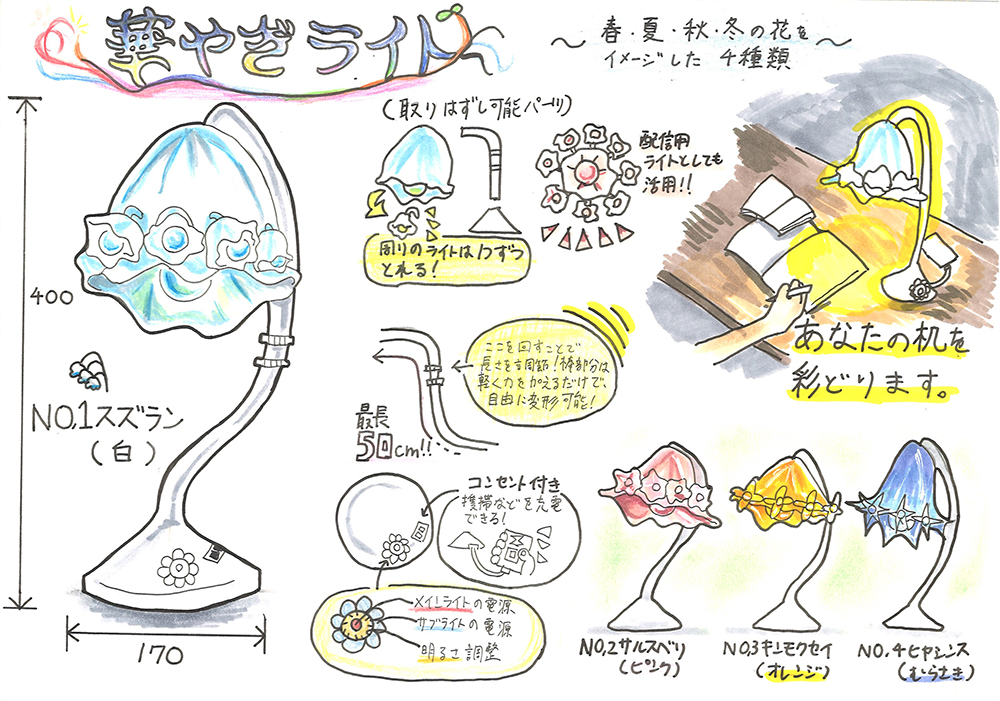 華やぎライト
～春・夏・秋・冬の花を～
イメージした 4種類
(取りはずし可能パーツ)
配信用
ライトとしても
活用!!
周りのライトは1つずつ
とれる!
400
NO,1スズラン
(白)
170
ここを回すことで
長さを調節!棒部分は
軽く力を加えるだけで、
自由に変形可能!
最長
50cm!!
コンセント付き
携帯などを充電
できる!
メインライトの電源
サブライトの電源
明るさ調整
あなたの机を
彩どります。
NO,2サルスベリ
(ピンク)
NO,3キンモクセイ
(オレンジ)
NO.4ヒヤシンス
(むらさき)